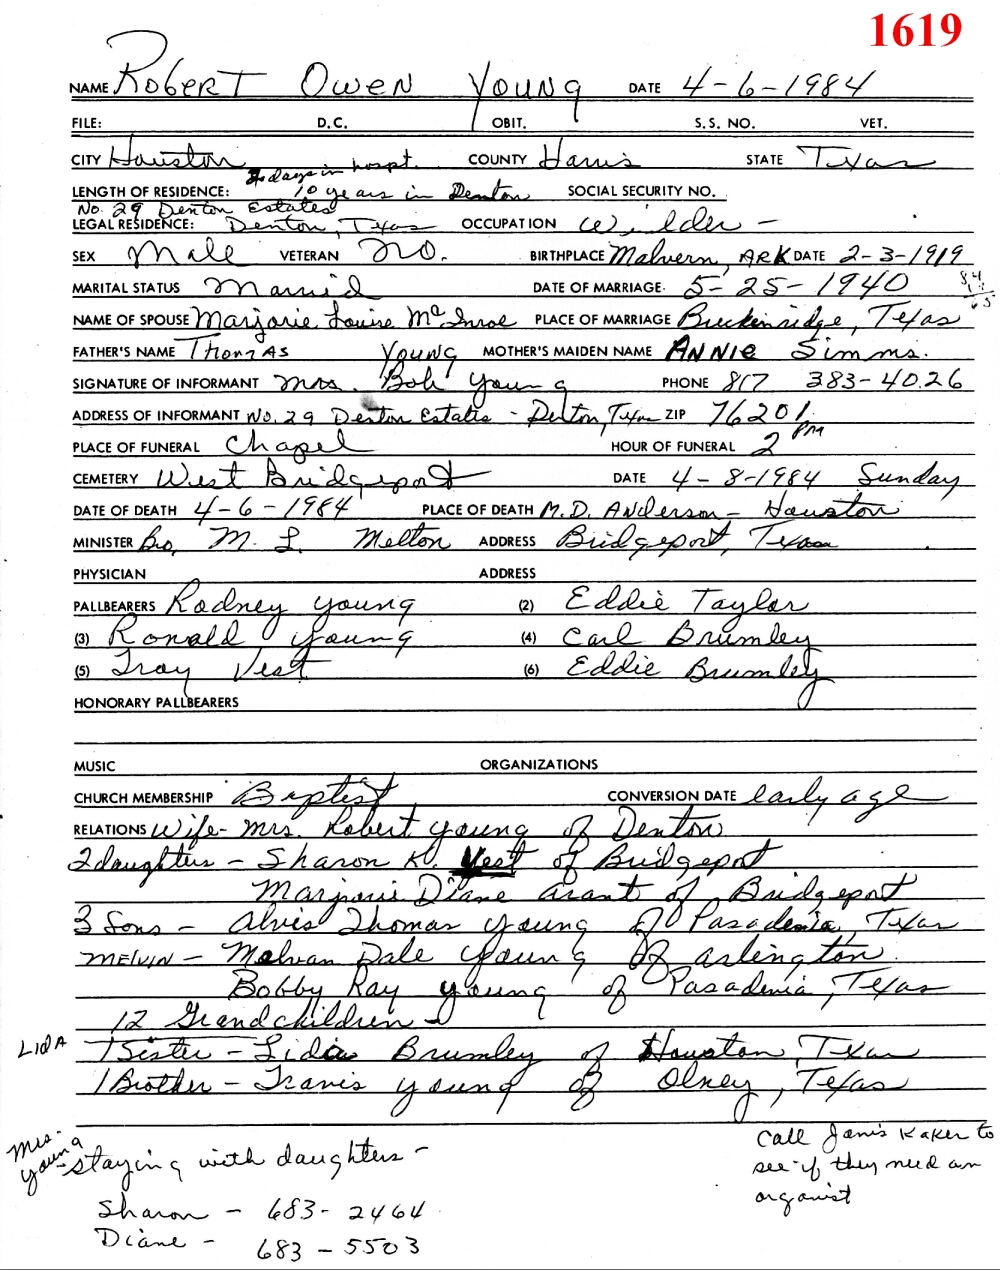 1619
NAME Robert Owen Young DATE 4-6-1984
FILE: D.C. OBIT. S.S. NO. VET.
CITY Houston COUNTY Harris STATE Texas
days in hospt.
LENGTH OF RESIDENCE: 10 years in Denton SOCIAL SECURITY NO.
No. 29 Denton Estates
LEGAL RESIDENCE: Denton, Texas OCCUPATION Welder -
SEX Male VETERAN No. BIRTHPLACE Malvern, ARK DATE 2-3-1919
MARITAL STATUS Married DATE OF MARRIAGE 5-25-1940
NAME OF SPOUSE Marjorie Louise McInroe PLACE OF MARRIAGE Breckenridge, Texas
FATHER'S NAME Thomas Young MOTHER'S MAIDEN NAME ANNIE Simms.
SIGNATURE OF INFORMANT Mrs. Bob Young PHONE 817 383-4026
ADDRESS OF INFORMANT No. 29 Denton Estates - Denton, Texas ZIP 76201
PLACE OF FUNERAL Chapel HOUR OF FUNERAL 2 PM
CEMETERY West Bridgeport DATE 4-8-1984 Sunday
DATE OF DEATH 4-6-1984 PLACE OF DEATH M.D. Anderson - Houston
MINISTER Bro. M. L. Melton ADDRESS Bridgeport, Texas
PHYSICIAN ADDRESS
PALLBEARERS Rodney Young (2) Eddie Taylor
(3) Ronald Young (4) Carl Brumley
(5) Troy Vest (6) Eddie Brumley
HONORARY PALLBEARERS
MUSIC ORGANIZATIONS
CHURCH MEMBERSHIP Baptist CONVERSION DATE early age
RELATIONS Wife - Mrs. Robert Young of Denton
2 daughters - Sharon K. Vest of Bridgeport
Marjorie Diane Arant of Bridgeport
3 Sons - Alvis Thomas Young of Pasadenia, Texas
MELVIN - Melvan Dale Young of Arlington
Bobby Ray Young of Pasadenia, Texas
12 Grandchildren
LIDA 1 Sister - Lida Brumley of Houston, Texas
1 Brother - Travis Young of Olney, Texas
Mrs. Young - staying with daughters -
Sharon - 683-2464
Diane - 683-5503
Call Janis Kaker to
see if they need an
organist